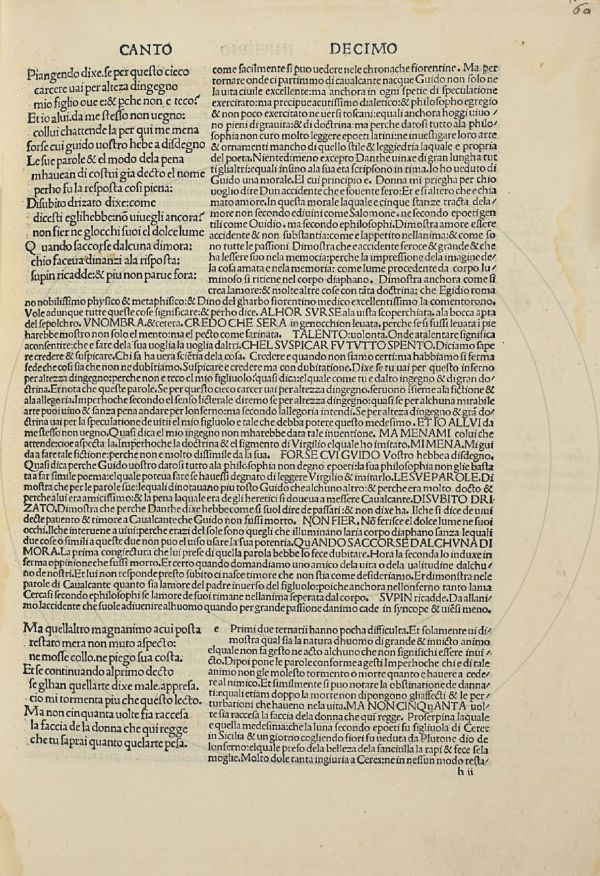 60
CANTO DECIMO
Piangendo dixe. se per questo cieco
carcere uai per alteza dingegno
mio figlio oue e: & perche non e teco?
Et io a lui. da me stesso non uegno:
collui chattende la per qui me mena
forse cui guido uostro hebe a disdegno
Le sue parole & el modo dela pena
mhauean di costui gia decto el nome
perho fu la resposta cosi piena:
Disubito drizato dixe: come
dicesti eglihebbe non uiuegli ancora?
non fier ne glocchi suoi el dolce lume
Quando saccorse dalcuna dimora:
chio faceua dinanzi ala risposta:
supin ricadde: & piu non parue fora:
come facilmente si puo uedere nele chronache fiorentine. Ma per
tornare onde ci partimmo di caualcante nacque Guido non solo ne
la uita ciuile excellente: ma anchora in ogni spetie di speculatione
exercitato: ma precipue acutissimo dialetico: & philosopho egregio
& non poco exercitato ne uersi toscani: equali anchora hoggi uiuo
no pieni di grauita: & di doctrina: ma perche datosi tutto ala philo/
sophia non curo molto leggere epoeti latini: ne inuestigare loro arte
& ornamenti mancho di quello stile & leggiedria laquale e propria
del poeta. Nientedimeno excepto Danthe uinxe di gran lungha tut
ti glialtri: equali infino ala sua eta scripsono in rima. Io ho ueduto di
Guido una morale. El cui principio e. Donna mi priegha per chio
uoglio dire Dun accidente che e souente fero: Et e si altero che e chia
mato amore. In questa morale laquale e cinque stanze tracta dela/
more non secondo ediuini come Salomone. ne secondo epoeti gen
tili come Ouidio. ma secondo ephilosophi. Dimostra amore essere
accidente & non substantia: come e lapperito nellanima: & come so
no tutte le passioni Dimostra che e accidente feroce & grande & che
ha lessere suo nela memoria: perche la impressione dela imagine de/
la cosa amata e nela memoria: come lume procedente da corpo lu/
minoso si ritiene nel corpo diaphano. Dimostra anchora come si
crea lamore: & molte altre cose con tata doctrina: che Egidio roma
no nobilissimo physico & metaphisico: & Dino del gharbo fiorentino medico excellentissimo la comentorono.
Vole adunque tutte queste cose significare: & perho dice. ALHOR SVRSE ala uista scoperchiata. ala bocca apta
del sepolchro. VNOMBRA. & cetera. CREDO CHE SERA in genocchion leuata, perche se si fussi leuata i pie
harebbe mostro non solo el mento: ma el pecto come farinata. TALENTO: uolonta. Onde atalentare significa
aconsentire: che e fare dela sua uoglia la uoglia daltri. CHEL SVSPICAR FV TVTTO SPENTO. Diciamo sape
re credere & suspicare. Chi sa ha uera scientia dela cosa. Credere e quando non siamo certi: ma habbiamo si ferma
fede che cosi sia che non ne dubitiamo. Suspicare e credere ma con dubitatione. Dixe se tu uai per questo inferno
per alteza dingegno: perche non e teco el mio figluolo: quasi dica: elquale come tu e dalto ingegno & di gran do/
ctrina. Et nota che queste parole. Se per questo cieco carcer uai per alteza dingegno. seruono insieme ala fictione &
ala allegoria. Imperhoche secondo el senso litterale diremo se per alteza dingegno: quasi se per alchuna mirabile
arte puoi uiuo & sanza pena andare per lonferno: ma secondo lallegoria intendi. Se per alteza dingegno & gra do/
ctrina uai per la speculatione de uitii el mio figluolo e tale che debba potere questo medesimo. ET IO ALLVI da
me stesso non uegno. Quasi dica el mio ingegno non mharebbe dara tale inuentione. MA MENAMI colui che
attende cioe aspecta la. Imperhoche la doctrina & el figmento di Virgilio elquale ho imitato. MI MENA. Mi gui
da a fare tale fictione: perche non e molto dissimile da la sua. FORSE CVI GVIDO Vostro hebbe a disdegno.
Quasi dica perche Guido uostro datosi tutto ala philosophia non degno epoeti: la sua philosophia non glie basta
ta a far simile poema: elquale potrua fare se hauessi degnato di leggere Virgilio & imitarlo. LE SVE PAROLE. Di
mostra che per le parole sue: lequali dinotauano piu tosto Guido che alchuno altro: & perche era molto docto &
perche alui era amicissimo: & la pena laquale era de gli heretici si doueua a messere Caualcante. DISVBITO DRI
ZATO. Dimostra che perche Danthe dixe hebbe come si suol dire de passati: & non dixe ha. Ilche si dice de uiui
decte patento & timore a Caualcante che Guido non fussi morto. NON FIER. Non ferisce el dolce lume ne suoi
occhi. Ilche interuene a uiui: perche erazi del sole sono quegli che illuminano laria corpo diaphano sanza lequali
due cose o simili a queste due non puo el uiso usare la sua potentia. QVANDO SACCORSE DALCHVNA DI
MORA. La prima congiectura che lui prese di quella parola hebbe lo fece dubitare. Hora la seconda lo induxe in
ferma oppinione che fussi morto. Et certo quando domandiamo uno amico dela uita o dela ualitudine dalchu/
no de nostri. Et lui non responde presto subito ci nasce timore che non stia come desideriamo. Et dimostra nele
parole di Caualcante quanto sia lamore del padre in uerso del figluolo: poiche anchora nellonferno tanto lama
Cercasi secondo ephilosophi se lamore de suoi rimane nellanima seperata dal corpo. SVPIN ricadde. Da allani/
mo laccidente che suole adiuenire al huomo quando per grande passione danimo cade in syncope & uiesi meno.
Ma quellaltro magnanimo a cui posta
restato mera non muto aspecto:
ne mosse collo. ne piego sua costa.
Et se continuando al primo decto
se glhan quellarte dixe male. appresa.
cio mi tormenta piu che questo lecto.
Ma non cinquanta uolte fia raccesa
la faccia de la donna che qui regge
che tu saprai quanto quelarte pesa.
e Primi due ternarii hanno pocha difficulta. Et solamente ui di/
mostra qual sia la natura dhuomo di grande & inuicto animo
elquale non fa gesto ne acto alchuno che non significhi essere inui/
cto. Dipoi pone le parole conforme a gesti Imperhoche chi e di tale
animo non gle molesto tormento o morte quanto e hauere a cede/
re al nimico. Et similmente si puo notare la obstinatione de danna/
ti: equali etiam doppo la morte non dipongono ghaffecti & le per/
turbationi che haueno nela uita. MA NON CINQVANTA uol/
te sia raccesa la faccia dela donna che qui regge. Proserpina laquale
e quella medesima: che la luna secondo epoeti fu figliuola di Cerer
in Sicilia & un giorno cogliendo fiori fu ueduta da Plutone dio de
lonferno: elquale preso dela belleza dela fanciulla la rapi & fece sela
moglie. Molto dole tanta ingiuria a Ceres: ne in nessun modo resta/
h ii